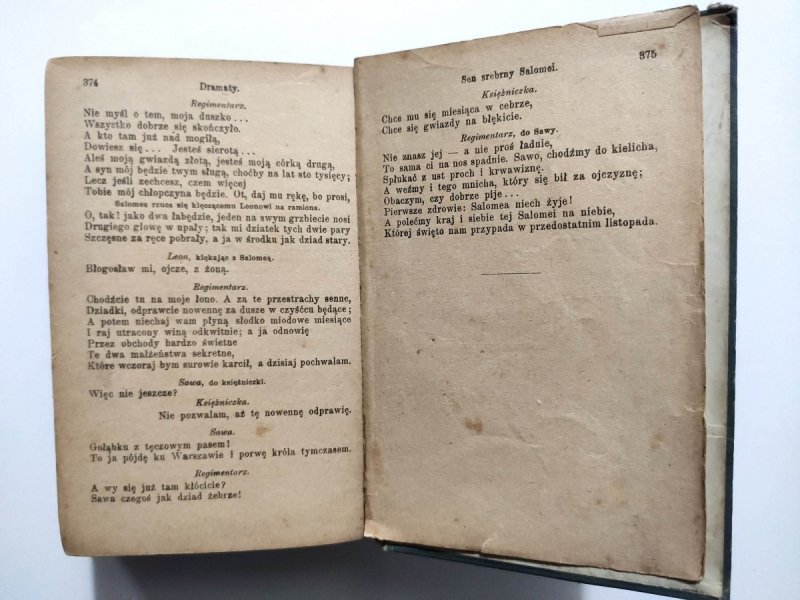 374
Dramaty.
Regimentarz.
Nie myśl o tem, moja duszko...
Wszystko dobrze się skończyło.
A kto tam już nad mogiłą,
Dowiesz się... Jesteś sierotą...
Aleś moją gwiazdą złotą, jesteś moją córką drugą,
A syn mój będzie twym sługą, choćby na lat sto tysięcy;
Lecz jeśli zechcesz, czem więcej
Tobie mój chłopczyna będzie. Ot, daj mu rękę, bo prosi,
Salomea rzuca się klęczącemu Leonowi na ramiona.
O, tak! jako dwa łabędzie, jeden na swym grzbiecie nosi
Drugiego głowę w upały; tak mi dziatek tych dwie pary
Szczęsne za ręce pobrały, a ja w środku jak dziad stary.
Leon, klękając z Salomeą.
Błogosław mi, ojcze, z żoną.
Regimentarz.
Chodźcie tu na moje łono. A za te przestrachy senne,
Dziadki, odprawcie nowennę za dusze w czyśćcu będące;
A potem niechaj wam płyną słodko miodowe miesiące
I raj utracony winą odkwitnie; a ja odnowię
Przez obchody bardzo świetne
Te dwa małżeństwa sekretne,
Które wczoraj bym surowie karcił, a dzisiaj pochwalam.
Sawa, do księżniczki.
Więc nie jeszcze?
Księżniczka.
Nie pozwalam, aż tę nowennę odprawię.
Sawa.
Gołąbku z tęczowym pasem!
To ja pójdę ku Warszawie i porwę króla tymczasem.
Regimentarz.
A wy się już tam kłócicie?
Sawa czegoś jak dziad żebrze!
Sen srebrny Salomei.
375
Księżniczka.
Chce mu się miesiąca w cebrze,
Chce się gwiazdy na błękicie.
Regimentarz, do Sawy.
Nie znasz jej — a nie proś ładnie,
To sama ci na nos spadnie. Sawo, chodźmy do kielicha,
Spłukać z ust proch i krwawiznę.
A weźmy i tego mnicha, który się bił za ojczyznę;
Obaczym, czy dobrze pije...
Pierwsze zdrowie: Salomea niech żyje!
A polećmy kraj i siebie tej Salomei na niebie,
Której święto nam przypada w przedostatnim listopada.